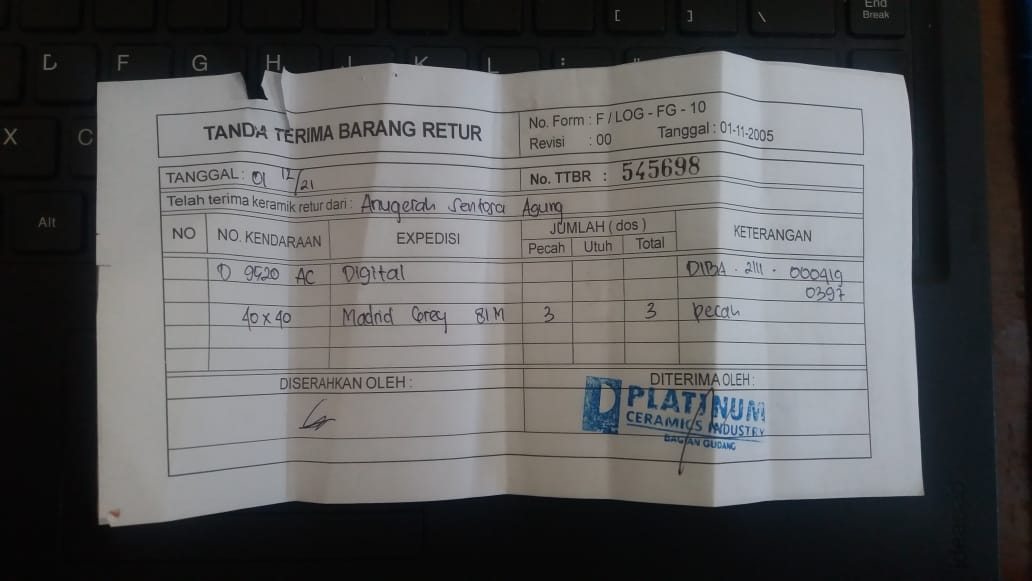 TANDA TERIMA BARANG RETUR
No. Form : F / LOG - FG - 10
Revisi : 00 Tanggal : 01-11-2005
TANGGAL : 01 12/21
No. TTBR : 545698
Telah terima keramik retur dari : Anugerah Sentosa Agung
NO NO. KENDARAAN EXPEDISI JUMLAH ( dos ) KETERANGAN
Pecah Utuh Total
D 9420 AC Digital DIBA . 2111 . 000419
0397
40 x 40 Madrid Corey 81M 3 3 pecah
DISERAHKAN OLEH : DITERIMA OLEH :
PLATINUM
CERAMICS INDUSTRY
BAGIAN GUDANG
[ ] \ End
Break
D F G H J K L ; "
X C
Alt